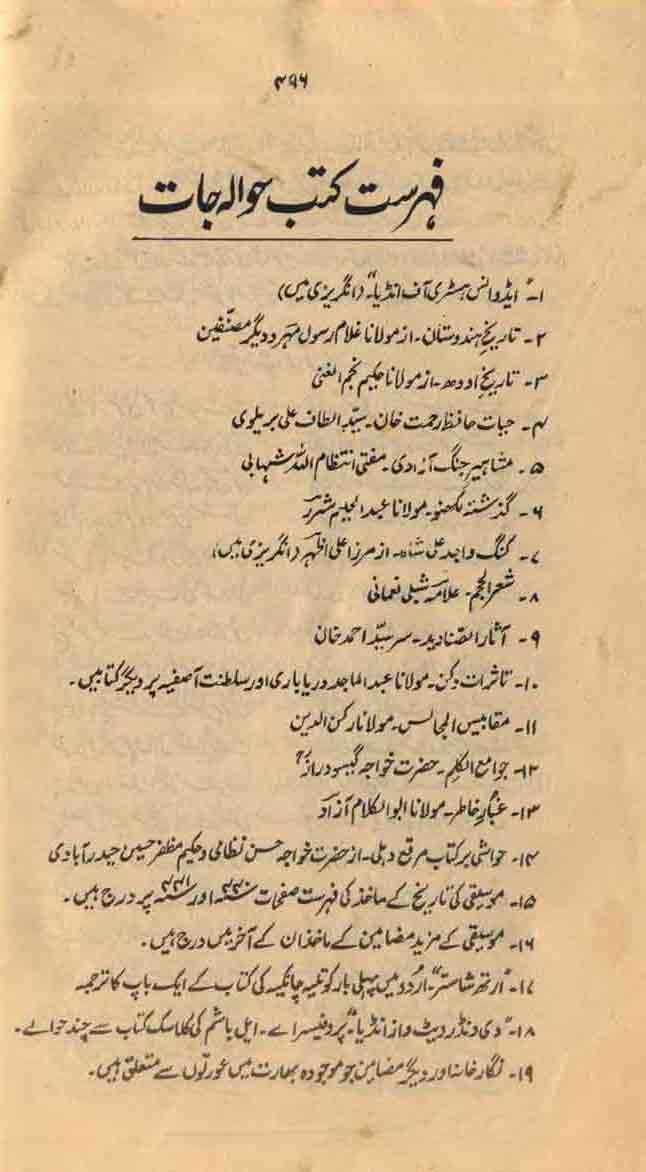 ۴۹۶
فہرست کتب حوالہ جات
۱۔ "ایڈوانس ہسٹری آف انڈیا" (انگریزی میں)
۲۔ تاریخِ ہندوستان۔ از مولانا غلام رسول مہر و دیگر مصنّفین
۳۔ تاریخِ اودھ۔ از مولانا حکیم نجم الغنی
۴۔ حیات حافظ رحمت خان۔ سیّد الطاف علی بریلوی
۵۔ مشاہیرِ جنگ آزادی۔ مفتی انتظام اللہ شہابی
۶۔ گذشتہ لکھنو۔ مولانا عبدالحلیم شرر
۷۔ کنگ واجد علی شاہ۔ از مرزا علی اظہر (انگریزی میں)
۸۔ شعر العجم۔ علامہ شبلی نعمانی
۹۔ آثار الصنادید۔ سر سیّد احمد خان
۱۰۔ تاثرات دکن۔ مولانا عبدالماجد دریا باری اور سلطنت آصفیہ پر دیگر کتابیں۔
۱۱۔ مقابیس المجالس۔ مولانا رکن الدین
۱۲۔ جوامع الکلم۔ حضرت خواجہ گیسو درازؒ
۱۳۔ غبارِ خاطر۔ مولانا ابوالکلام آزاد
۱۴۔ حواشی بر کتاب مرقع دہلی۔ از حضرت خواجہ حسن نظامی و حکیم مظفر حسین حیدرآبادی
۱۵۔ موسیقی کی تاریخ کے ماخذ کی فہرست صفحات ۳۳۰ اور ۳۳۱ پر درج ہیں۔
۱۶۔ موسیقی کے مزید مضامین کے ماخذ ان کے آخر میں درج ہیں۔
۱۷۔ "ارتھ شاستر" اُردو میں پہلی بار کوتلیہ چانکیہ کی کتاب کے ایک باپ کا ترجمہ
۱۸۔ "دی ونڈر دیٹ واز انڈیا" پروفیسر اے۔ ایل باشم کی کلاسک کتاب سے چند حوالے۔
۱۹۔ نگار خانہ اور دیگر مضامین جو موجودہ بھارت میں عورتوں سے متعلق ہیں۔